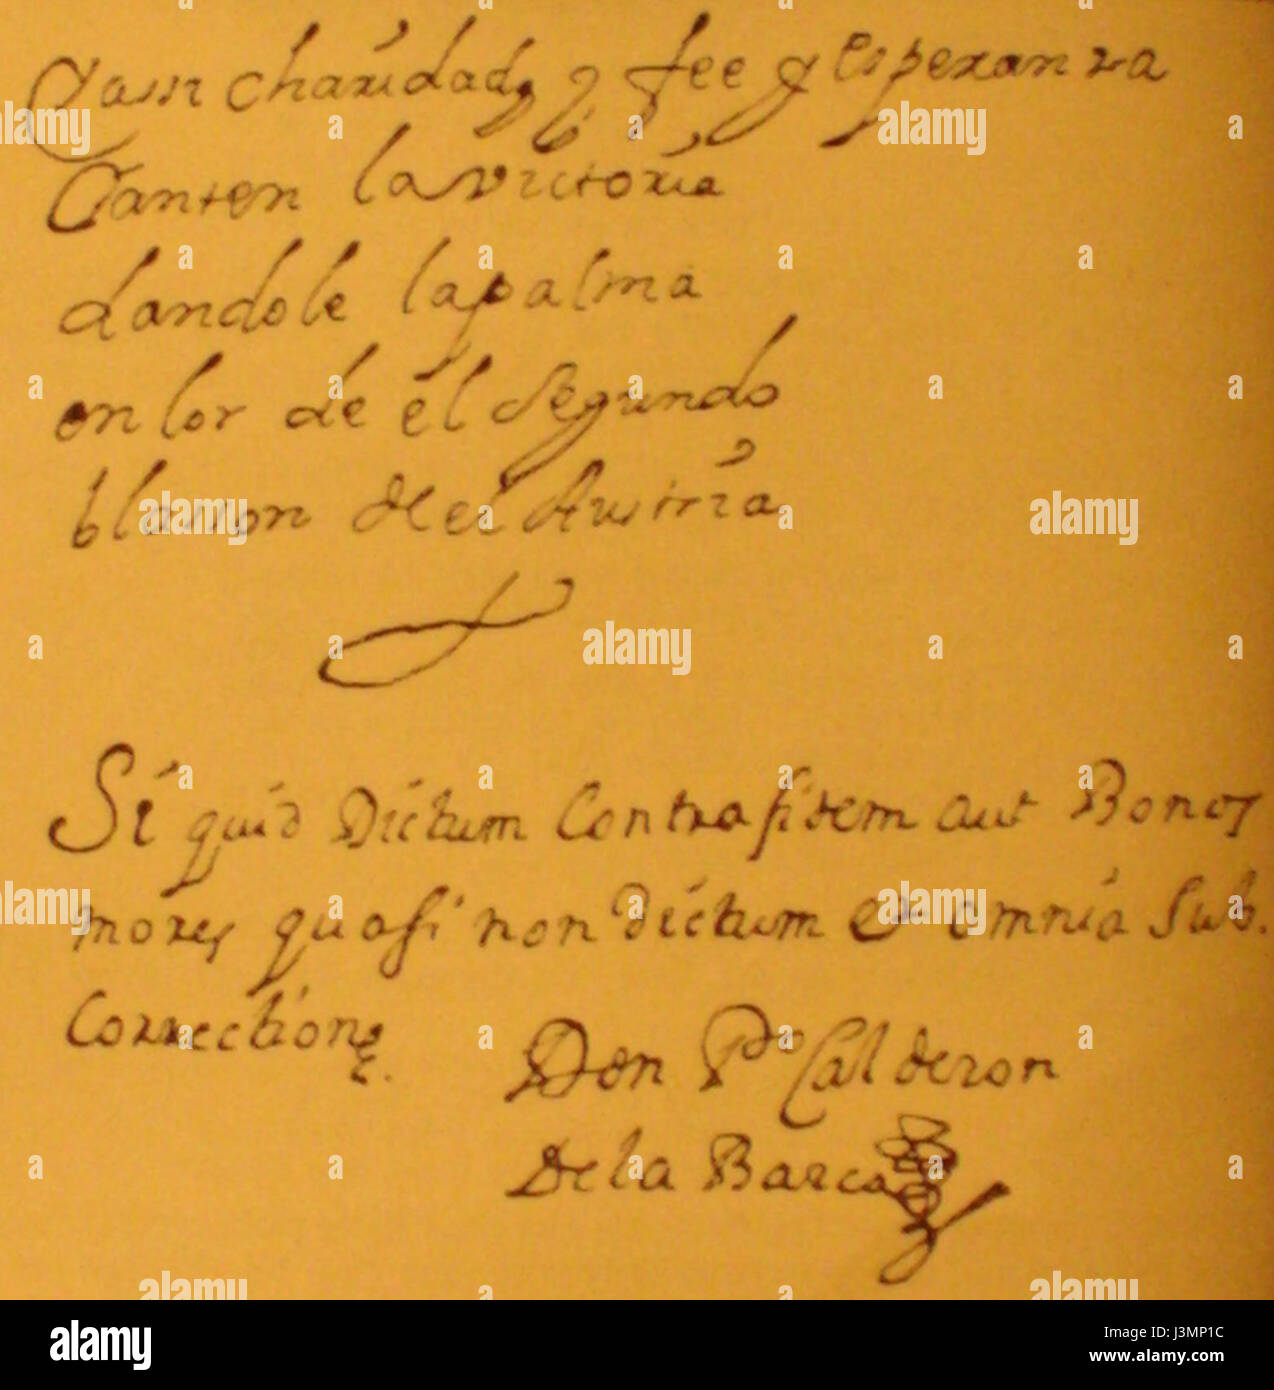 Yassi charidad, y fee y esperanza
Canten la victoria
dandole la palma
en lor de el segundo
blasson de el Austria
Si quid Dictum Contra fidem aut Bonos
mores quasi non Dictum et omnia Sub.
Correctione.
Don Pº Calderon
De la Barca
alamy stock photo
J3MP1C
www.alamy.com